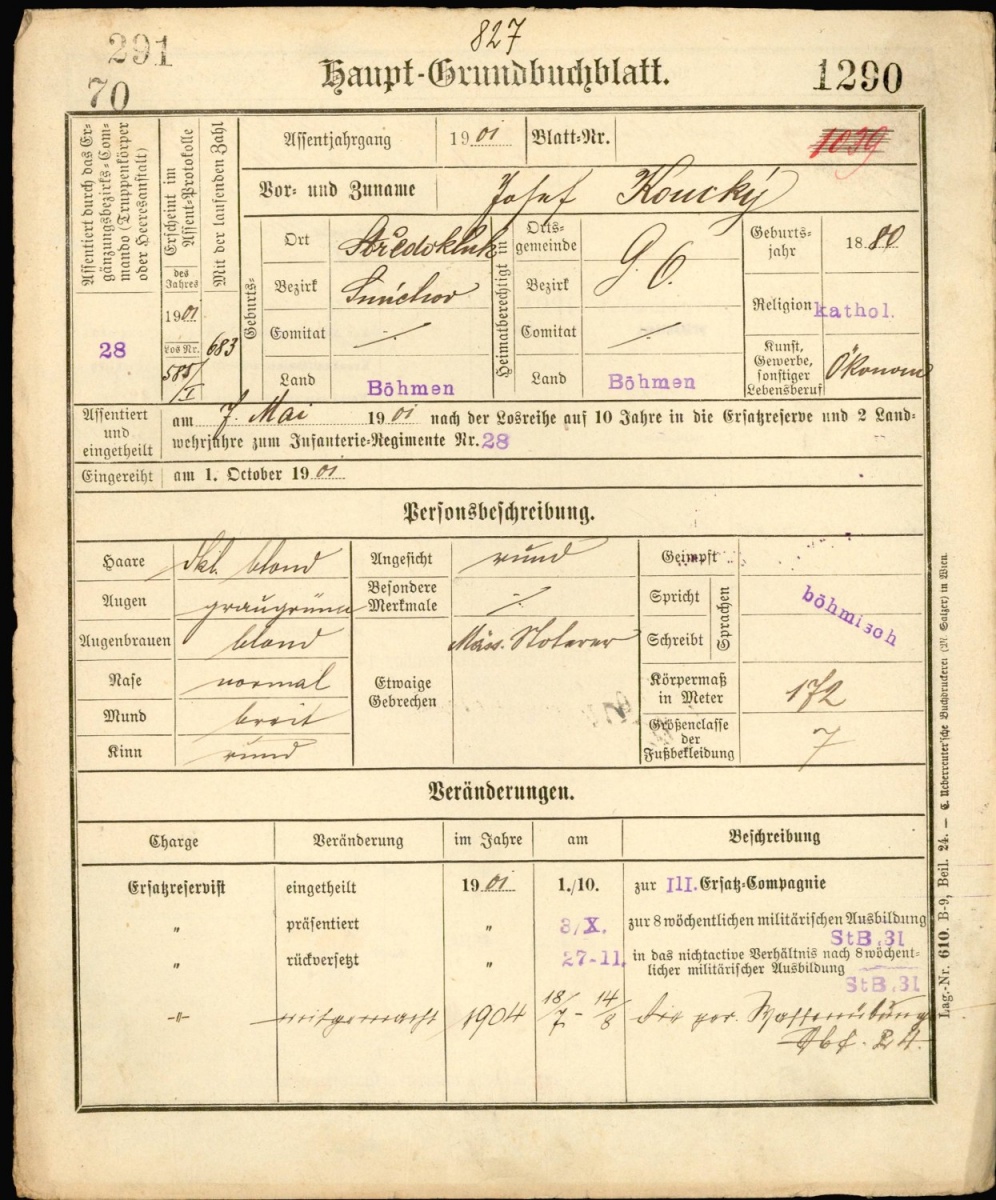 827
291
70
Haupt-Grundbuchblatt.
1290
Assentiert durch das Er-
gänzungsbezirks-Com-
mando (Truppenkörper
oder Heeresanstalt)
28
Erscheint im
Assent-Protokolle
des
Jahres
1901
Los Nr.
585/I
Mit der laufenden Zahl
683
Assentjahrgang 1901 Blatt-Nr. 1039
Vor- und Zuname Josef Koucký
Geburts-
Ort Středokluk
Bezirk Smíchov
Comitat ·/·
Land Böhmen
Heimatberechtigt in
Orts-
gemeinde
Bezirk
Comitat ·/·
Land Böhmen
Geburts-
jahr 1880
Religion kathol.
Kunst,
Gewerbe,
sonstiger
Lebensberuf Ökonom
Assentiert
und
eingetheilt
am 7. Mai 1901 nach der Losreihe auf 10 Jahre in die Ersatzreserve und 2 Land-
wehrjahre zum Infanterie-Regimente Nr. 28
Eingereiht am 1. October 1901
Personsbeschreibung.
Haare dkl. blond
Augen graugrün
Augenbrauen blond
Nase normal
Mund breit
Kinn rund
Angesicht rund
Besondere
Merkmale ·/·
Etwaige
Gebrechen Mäss.
Geimpft
Spricht
Schreibt
Sprachen
böhmisch
Körpermaß
in Meter 172
Größenclasse
der
Fußbekleidung 7
Veränderungen.
Charge Veränderung im Jahre am Beschreibung
Ersatzreservist eingetheilt 1901 1./10. zur III. Ersatz-Compagnie
" präsentiert " 3/X. zur 8 wöchentlichen militärischen Ausbildung
StB.31
" rückversetzt " 27-11. in das nichtactive Verhältnis nach 8 wöchent-
licher militärischer Ausbildung
StB.31
-"- mitgemacht 1904 18/7 - 14/8 die per. Waffenübung
Lag.-Nr. 610. B-9, Beil. 24. — C. Ueberreuter'sche Buchdruckerei (M. Salzer) in Wien.